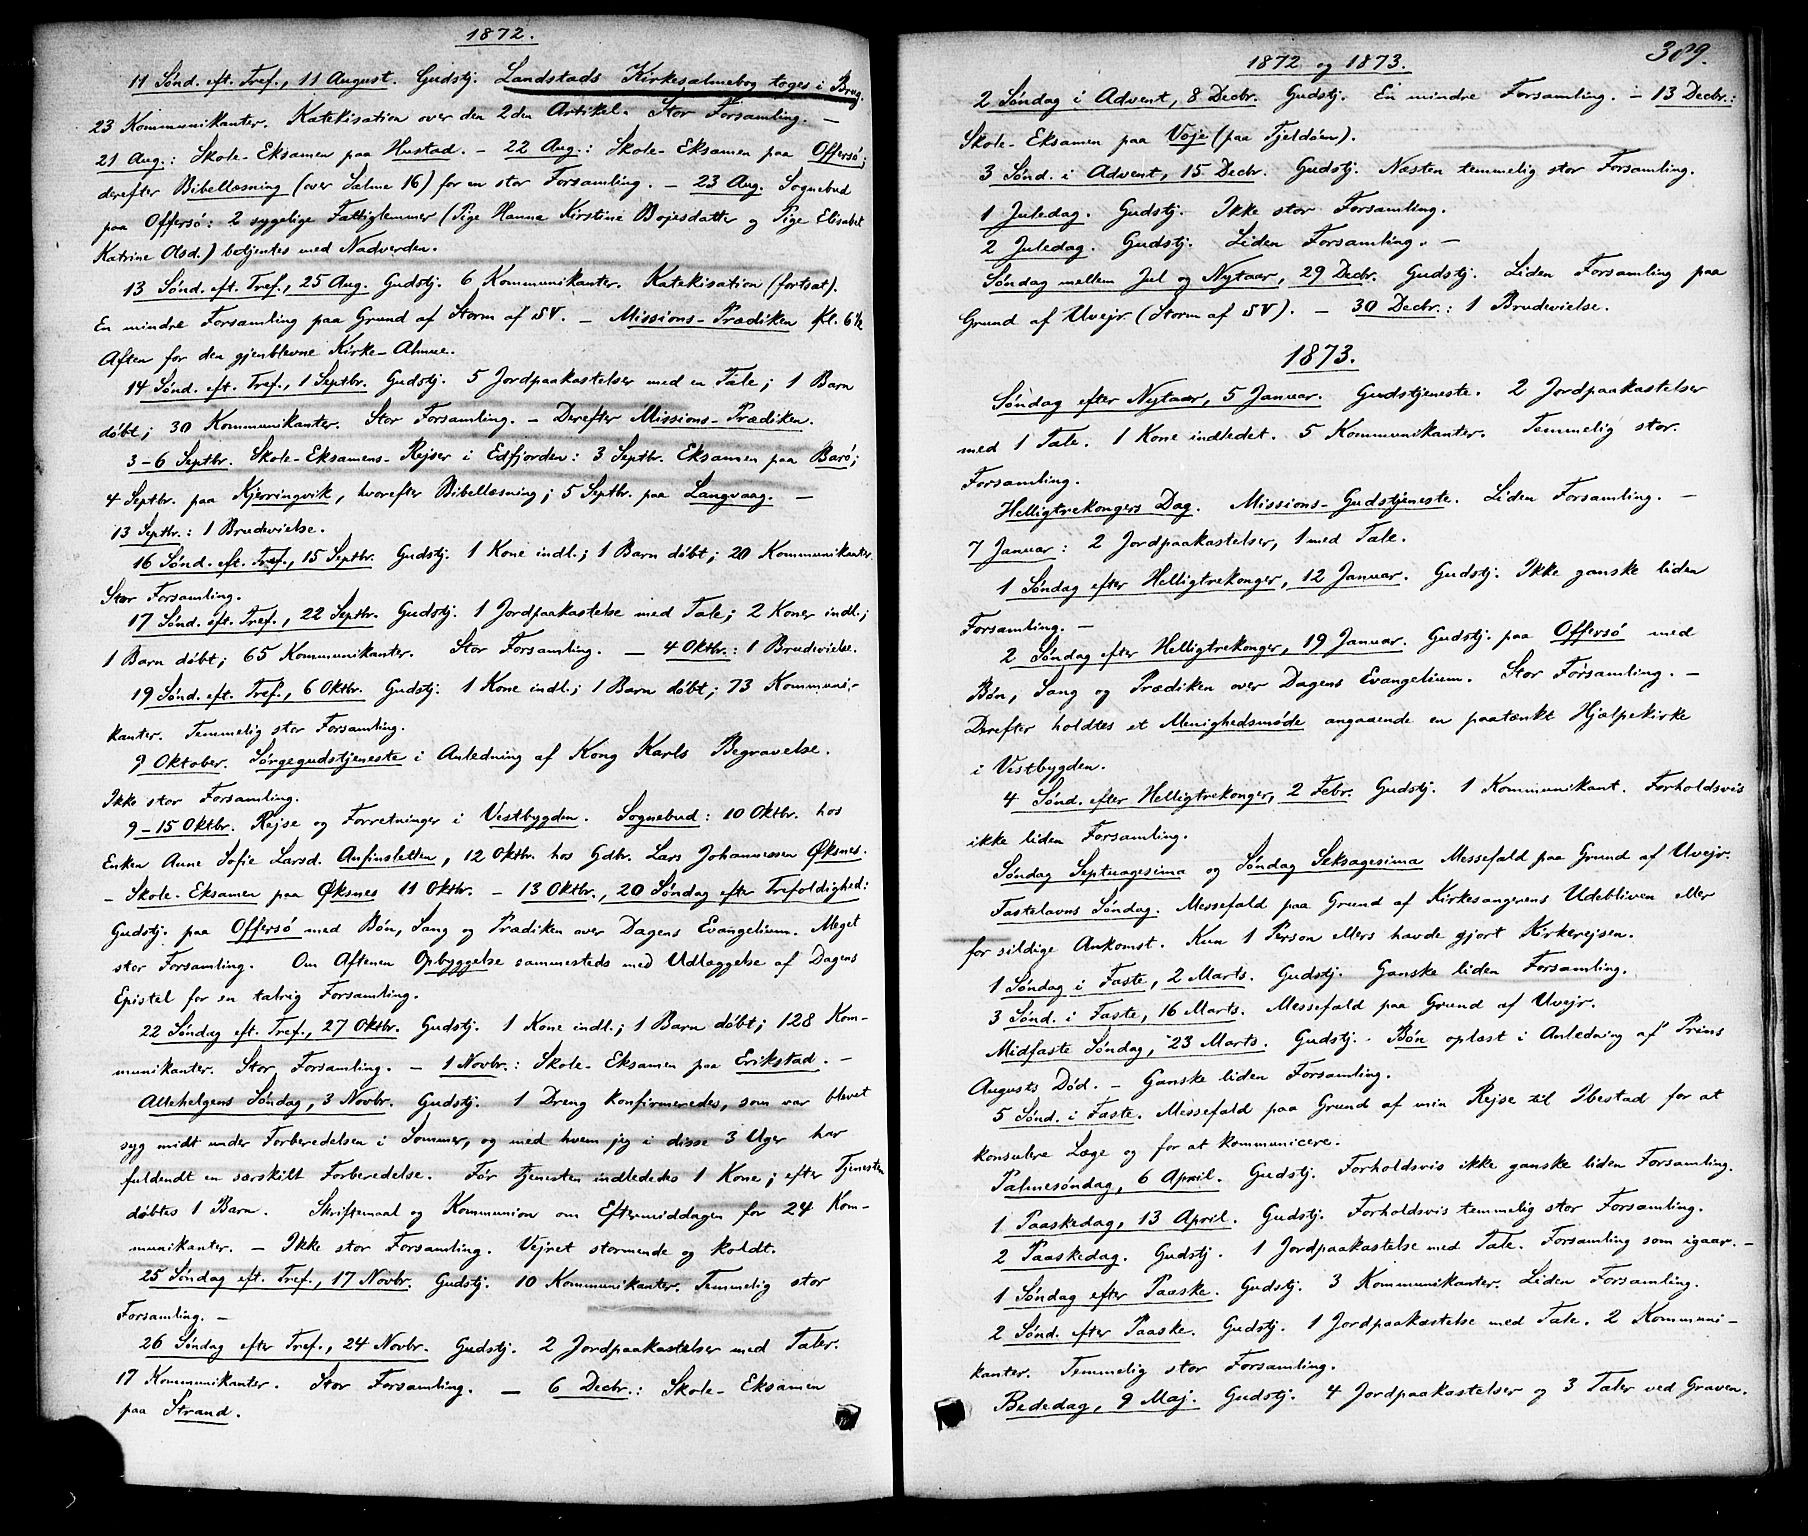 1872.
11 Sønd. eft. Tref., 11 August. Gudstj. Landstads Kirkesalmebog toges i Brug.
23 Kommunikanter. Katekisation over den 2den Artikel. Stor Forsamling. —
21 Aug.: Skole-Eksamen paa Hustad. — 22 Aug.: Skole-Eksamen paa Offersø;
derefter Bibellæsning (over Salme 16) for en stor Forsamling. — 23 Aug. Sognebud
paa Offersø: 2 sygelige Fattiglemmer (Pige Hanna Kirstine Bojesdatter og Pige Elisabet
Katrine Olsd.) betjentes med Nadverden.
13 Sønd. eft. Tref., 25 Aug. Gudstj. 6 Kommunikanter. Katekisation (fortsat).
En mindre Forsamling paa Grund af Storm af SV. — Missions-Prædiken Kl. 6½
Aften for den gjenblevne Kirke-Almue.
14 Sønd. eft. Tref., 1 Septbr. Gudstj. 5 Jordpaakastelser med en Tale; 1 Barn
døbt; 30 Kommunikanter. Stor Forsamling. — Derefter Missions-Prædiken.
3-6 Septbr. Skole-Eksamens-Rejser i Edfjorden: 3 Septbr. Eksamen paa Barø;
4 Septbr. paa Kjerringvik, hvorefter Bibellæsning; 5 Septbr. paa Langvaag. —
13 Septbr.: 1 Brudevielse.
16 Sønd. eft. Tref., 15 Septbr. Gudstj. 1 Kone indl.; 1 Barn døbt; 20 Kommunikanter.
Stor Forsamling.
17 Sønd. eft. Tref., 22 Septbr. Gudstj. 1 Jordpaakastelse med Tale; 2 Koner indl.;
1 Barn døbt; 65 Kommunikanter. Stor Forsamling. — 4 Oktbr.: 1 Brudevielse.
19 Sønd. eft. Tref., 6 Oktbr. Gudstj. 1 Kone indl.; 1 Barn døbt; 73 Kommuni-
kanter. Temmelig stor Forsamling.
9 Oktober. Sørgegudstjeneste i Anledning af Kong Karls Begravelse.
Ikke stor Forsamling.
9-15 Oktbr. Rejse og Forretninger i Vestbygden. Sognebud: 10 Oktbr. hos
Enken Anne Sofie Larsd. Anfinsletten, 12 Oktbr. hos Gdbr. Lars Johannessen Øksnes.
— Skole-Eksamen paa Øksnes 11 Oktbr. — 13 Oktbr., 20 Søndag efter Trefoldighed:
Gudstj. paa Offersø med Bøn, Sang og Prædiken over Dagens Evangelium. Meget
stor Forsamling. Om Aftenen Opbyggelse sammesteds med Udlæggelse af Dagens
Epistel for en talrig Forsamling.
22 Søndag eft. Tref., 27 Oktbr. Gudstj. 1 Kone indl.; 1 Barn døbt; 128 Kom-
munikanter. Stor Forsamling. — 1 Novbr.: Skole-Eksamen paa Erikstad. —
Allehelgens Søndag, 3 Novbr. Gudstj. 1 Dreng konfirmeredes, som var blevet
syg midt under Forberedelsen i Sommer, og med hvem jeg i disse 3 Uger har
fuldendt en særskilt Forberedelse. Før Tjenesten indlededes 1 Kone; efter Tjenesten
døbtes 1 Barn. Skriftemaal og Kommunion om Eftermiddagen for 24 Kom-
munikanter. — Ikke stor Forsamling. Vejret stormende og koldt.
25 Søndag eft. Tref., 17 Novbr. Gudstj. 10 Kommunikanter. Temmelig stor
Forsamling. —
26 Søndag efter Tref., 24 Novbr. Gudstj. 2 Jordpaakastelser med Taler.
17 Kommunikanter. Stor Forsamling. — 6 Decbr.: Skole-Eksamen
paa Strand.
309.
1872 og 1873.
2 Søndag i Advent, 8 Decbr. Gudstj. En mindre Forsamling. — 13 Decbr.:
Skole-Eksamen paa Voje (paa Tjeldøen).
3 Sønd. i Advent, 15 Decbr. Gudstj. Næsten temmelig stor Forsamling.
1 Juledag. Gudstj. Ikke stor Forsamling.
2 Juledag. Gudstj. Liden Forsamling. —
Søndag mellem Jul og Nytaar, 29 Decbr. Gudstj. Liden Forsamling paa
Grund af Uvejr (Storm af SV). — 30 Decbr.: 1 Brudevielse.
1873.
Søndag efter Nytaar, 5 Januar. Gudstjeneste. 2 Jordpaakastelser
med 1 Tale. 1 Kone indledet. 5 Kommunikanter. Temmelig stor.
Forsamling.
Helligtrekongers Dag. Missions-Gudstjeneste. Liden Forsamling. —
7 Januar: 2 Jordpaakastelser, 1 med Tale.
1 Søndag efter Helligtrekonger, 12 Januar. Gudstj. Ikke ganske liden
Forsamling. —
2 Søndag efter Helligtrekonger, 19 Januar. Gudstj. paa Offersø med
Bøn, Sang og Prædiken over Dagens Evangelium. Stor Forsamling. —
Derefter holdtes et Menighedsmøde angaaende en paatænkt Hjælpekirke
i Vestbygden.
4 Sønd. efter Helligtrekonger, 2 Febr. Gudstj. 1 Kommunikant. Forholdsvis
ikke liden Forsamling.
Søndag Septuagesima og Søndag Seksagesima Messefald paa Grund af Uvejr.
Fastelavns Søndag. Messefald paa Grund af Kirkesangerens Udebliven eller
for sildige Ankomst. Kun 1 Person ellers havde gjort Kirkerejsen.
1 Søndag i Faste, 2 Marts. Gudstj. Ganske liden Forsamling.
3 Sønd. i Faste, 16 Marts. Messefald paa Grund af Uvejr.
Midfaste Søndag, 23 Marts. Gudstj. - Bøn oplæst i Anledning af Prins
Augusts Død. — Ganske liden Forsamling.
5 Sønd. i Faste. Messefald paa Grund af min Rejse til Ibestad for at
konsulere Læge og for at kommunicere.
Palmesøndag, 6 April. Gudstj. Forholdsvis ikke ganske liden Forsamling.
1 Paaskedag, 13 April. Gudstj. Forholdsvis temmelig stor Forsamling.
2 Paaskedag. Gudstj. 1 Jordpaakastelse med Tale. Forsamling som igaar. —
1 Søndag efter Paaske. Gudstj. 3 Kommunikanter. Liden Forsamling.
2 Sønd. efter Paaske. Gudstj. 1 Jordpaakastelse med Tale. 2 Kommuni-
kanter. Temmelig stor Forsamling.
Bededag, 9 Maj. Gudstj. 4 Jordpaakastelser og 3 Taler ved Graven.